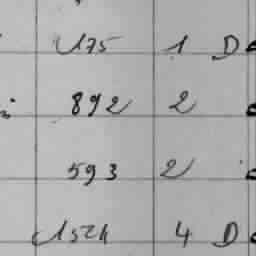 175 1 D
892 2
593 2
1524 4 D